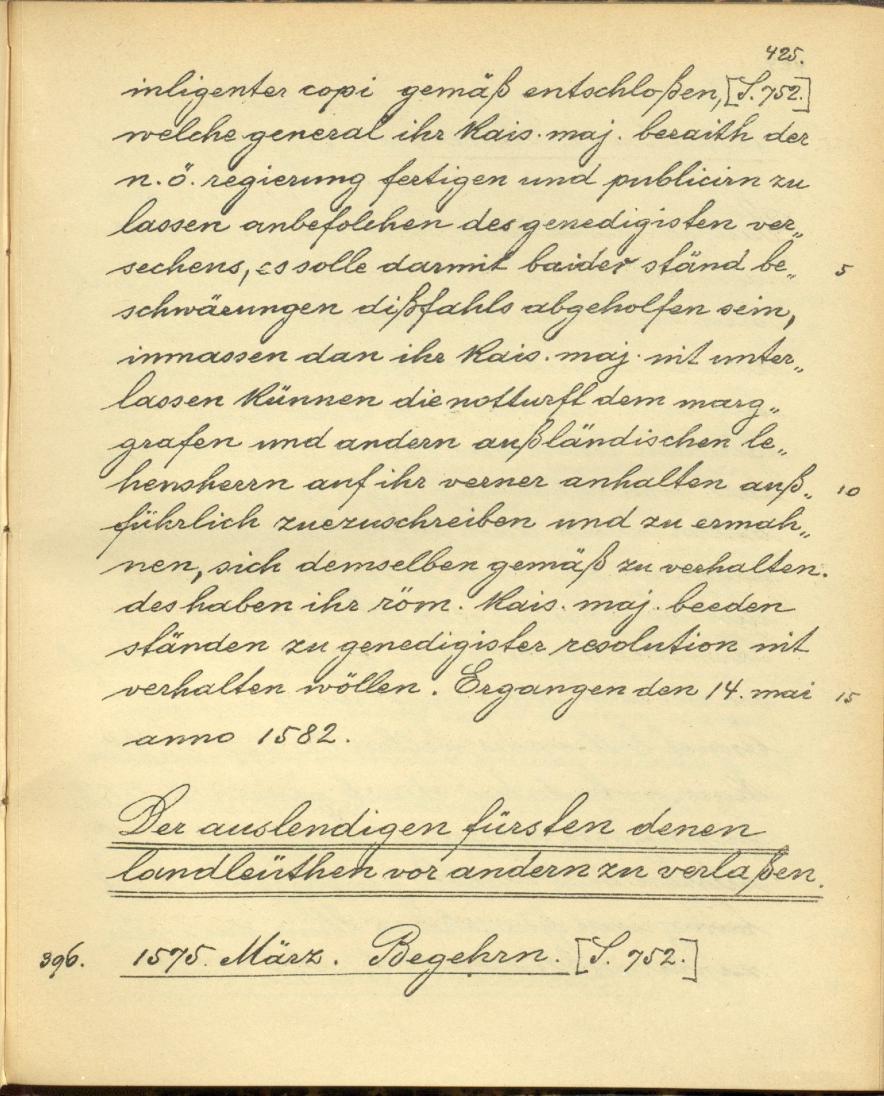 425.
inligenter copi gemäß entschloßen, [S. 752.]
welche general ihr kais. maj. beraith der
n. ö. regierung fertigen und publicirn zu
lassen anbefolchen des genedigisten ver„
sechens, es solle darmit baider ständ be„ 5
schwärungen dißfahls abgeholfen sein,
inmassen dan ihr kais. maj. nit unter„
lassen künnen die notturfft dem marg„
grafen und andern außländischen le„
hensherrn auf ihr verner anhalten auß„ 10
führlich zuezuschreiben und zu ermah„
nen, sich demselben gemäß zu verhalten.
des haben ihr röm. kais. maj. beeden
ständen zu genedigister resolution nit
verhalten wöllen. Ergangen den 14. mai 15
anno 1582.
Der auslendigen fürsten denen
landleüthen vor andern zu verlaßen.
396. 1575. März. Begehrn. [S. 752.]